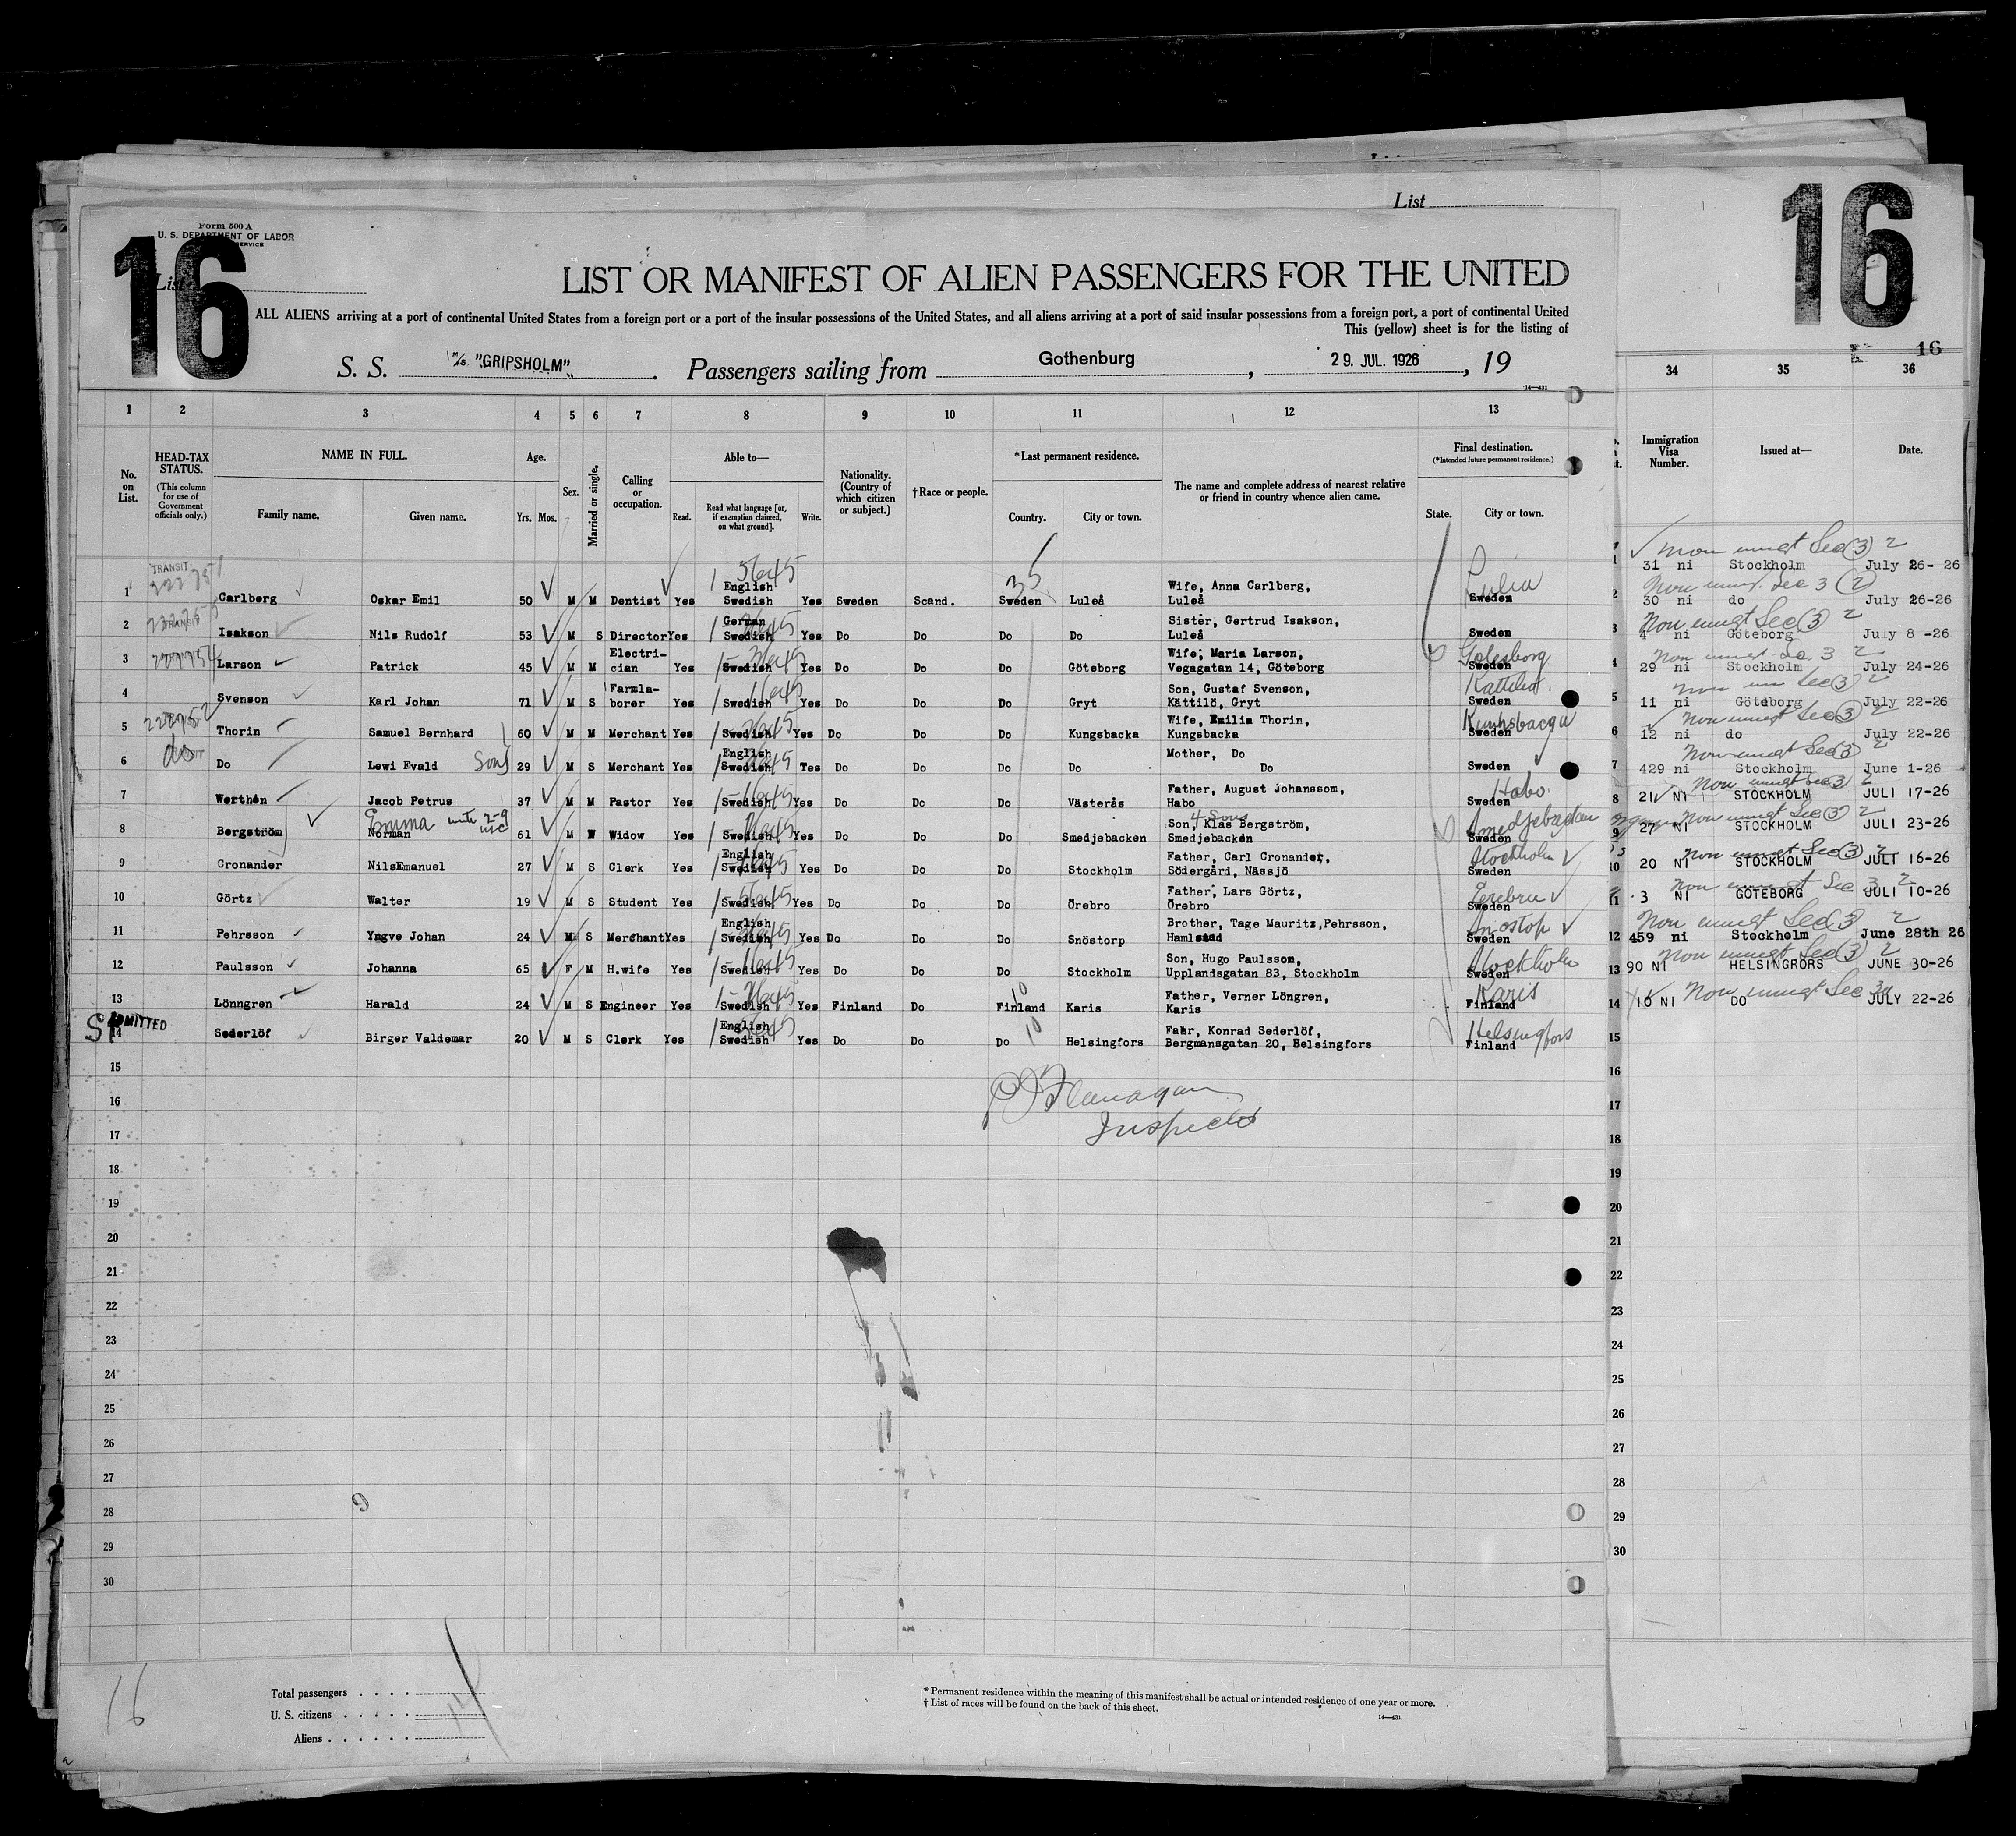 List
16
16
Form 500 A
U. S. DEPARTMENT OF LABOR
SERVICE
List
LIST OR MANIFEST OF ALIEN PASSENGERS FOR THE UNITED
ALL ALIENS arriving at a port of continental United States from a foreign port or a port of the insular possessions of the United States, and all aliens arriving at a port of said insular possessions from a foreign port, a port of continental United
This (yellow) sheet is for the listing of
S. S. M/S "GRIPSHOLM". Passengers sailing from Gothenburg, 29. JUL. 1926, 19
16
14—431
1 2 3 4 5 6 7 8 9 10 11 12 13 34 35 36
No. on List.
HEAD-TAX STATUS.
(This column for use of Government officials only.)
NAME IN FULL.
Family name. Given name.
Age.
Yrs. Mos.
Sex.
Married or single.
Calling or occupation.
Able to—
Read. Read what language [or, if exemption claimed, on what ground]. Write.
Nationality. (Country of which citizen or subject.)
†Race or people.
*Last permanent residence.
Country. City or town.
The name and complete address of nearest relative or friend in country whence alien came.
Final destination.
(*Intended future permanent residence.)
State. City or town.
Immigration Visa Number.
Issued at—
Date.
TRANSIT
1 Carlberg Oskar Emil 50 M M Dentist Yes English Swedish Yes Sweden Scand. Sweden Luleå Wife, Anna Carlberg, Luleå Sweden
2 Isakson Nils Rudolf 53 M S Director Yes German Swedish Yes Do Do Do Do Sister, Gertrud Isakson, Luleå Sweden
3 Larson Patrick 45 M M Electrician Yes Swedish Yes Do Do Do Göteborg Wife, Maria Larson, Vegagatan 14, Göteborg Sweden
4 Svenson Karl Johan 71 M S Farmlaborer Yes Swedish Yes Do Do Do Gryt Son, Gustaf Svenson, Kättilö, Gryt Sweden
5 Thorin Samuel Bernhard 60 M M Merchant Yes Swedish Yes Do Do Do Kungsbacka Wife, Emilia Thorin, Kungsbacka Kungsbacka Sweden
6 do Do Lewi Evald Son 29 M S Merchant Yes English Swedish Yes Do Do Do Do Mother, Do Do Sweden
7 Werthén Jacob Petrus 37 M M Pastor Yes Swedish Yes Do Do Do Västerås Father, August johanssom, Habo Habo Sweden
8 Bergström Norman Emma 61 M W Widow Yes Swedish Yes Do Do Do Smedjebacken 4 Sons Son, Klas Bergström, Smedjebacken Smedjebacken Sweden
9 Cronander NilsEmanuel 27 M S Clerk Yes English Swedish Yes Do Do Do Stockholm Father, Carl Cronander, Södergård, Nässjö Stockholm Sweden
10 Görtz Walter 19 M S Student Yes Swedish Yes Do Do Do Örebro Father, Lars Görtz, Örebro Sweden
11 Pehrsson Yngve Johan 24 M S Merchant Yes English Swedish Yes Do Do Do Snöstorp Brother, Tage Mauritz,Pehrsson, Hamlstad Sweden
12 Paulsson Johanna 65 F M H.wife Yes Swedish Yes Do Do Do Stockholm Son, Hugo Paulsson, Upplandsgatan 83, Stockholm Stockholm Sweden
13 Lönngren Harald 24 M S Engineer Yes Swedish Yes Finland Do Finland Karis Father, Verner Löngren, Karis Karis Finland
ADMITTED
14 Sederlöf Birger Valdemar 20 M S Clerk Yes English Swedish Yes Do Do Do Helsingfors Fahr, Konrad Sederlöf, Bergmansgatan 20, Helsingfors Helsingfors Finland
31 ni Stockholm July 26- 26
30 ni do July 26-26
4 ni Göteborg July 8 -26
29 ni Stockholm July 24-26
11 ni Göteborg July 22-26
12 ni do July 22-26
429 ni Stockholm June 1-26
21 NI STOCKHOLM JULI 17-26
27 NI STOCKHOLM JULI 23-26
20 NI STOCKHOLM JULI 16-26
3 NI GÖTEBORG JULI 10-26
459 ni Stockholm June 28th 26
90 NI HELSINGRORS JUNE 30-26
10 NI DO JULY 22-26
P J Flanagan
Inspector
15
16
17
18
19
20
21
22
23
24
25
26
27
28
29
30
16
Total passengers
U. S. citizens
Aliens
* Permanent residence within the meaning of this manifest shall be actual or intended residence of one year or more.
† List of races will be found on the back of this sheet.
14—431